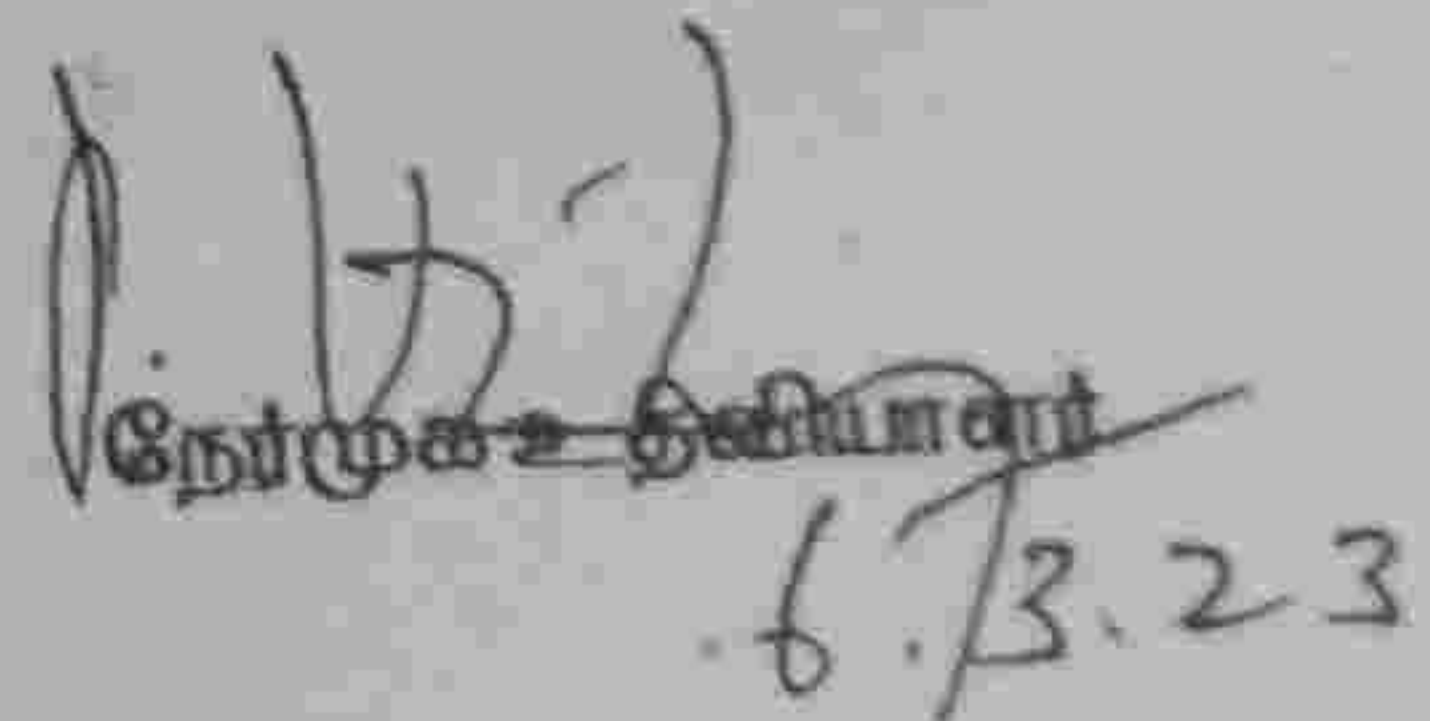 நேர்முக உதவியாளர்
6.3.23